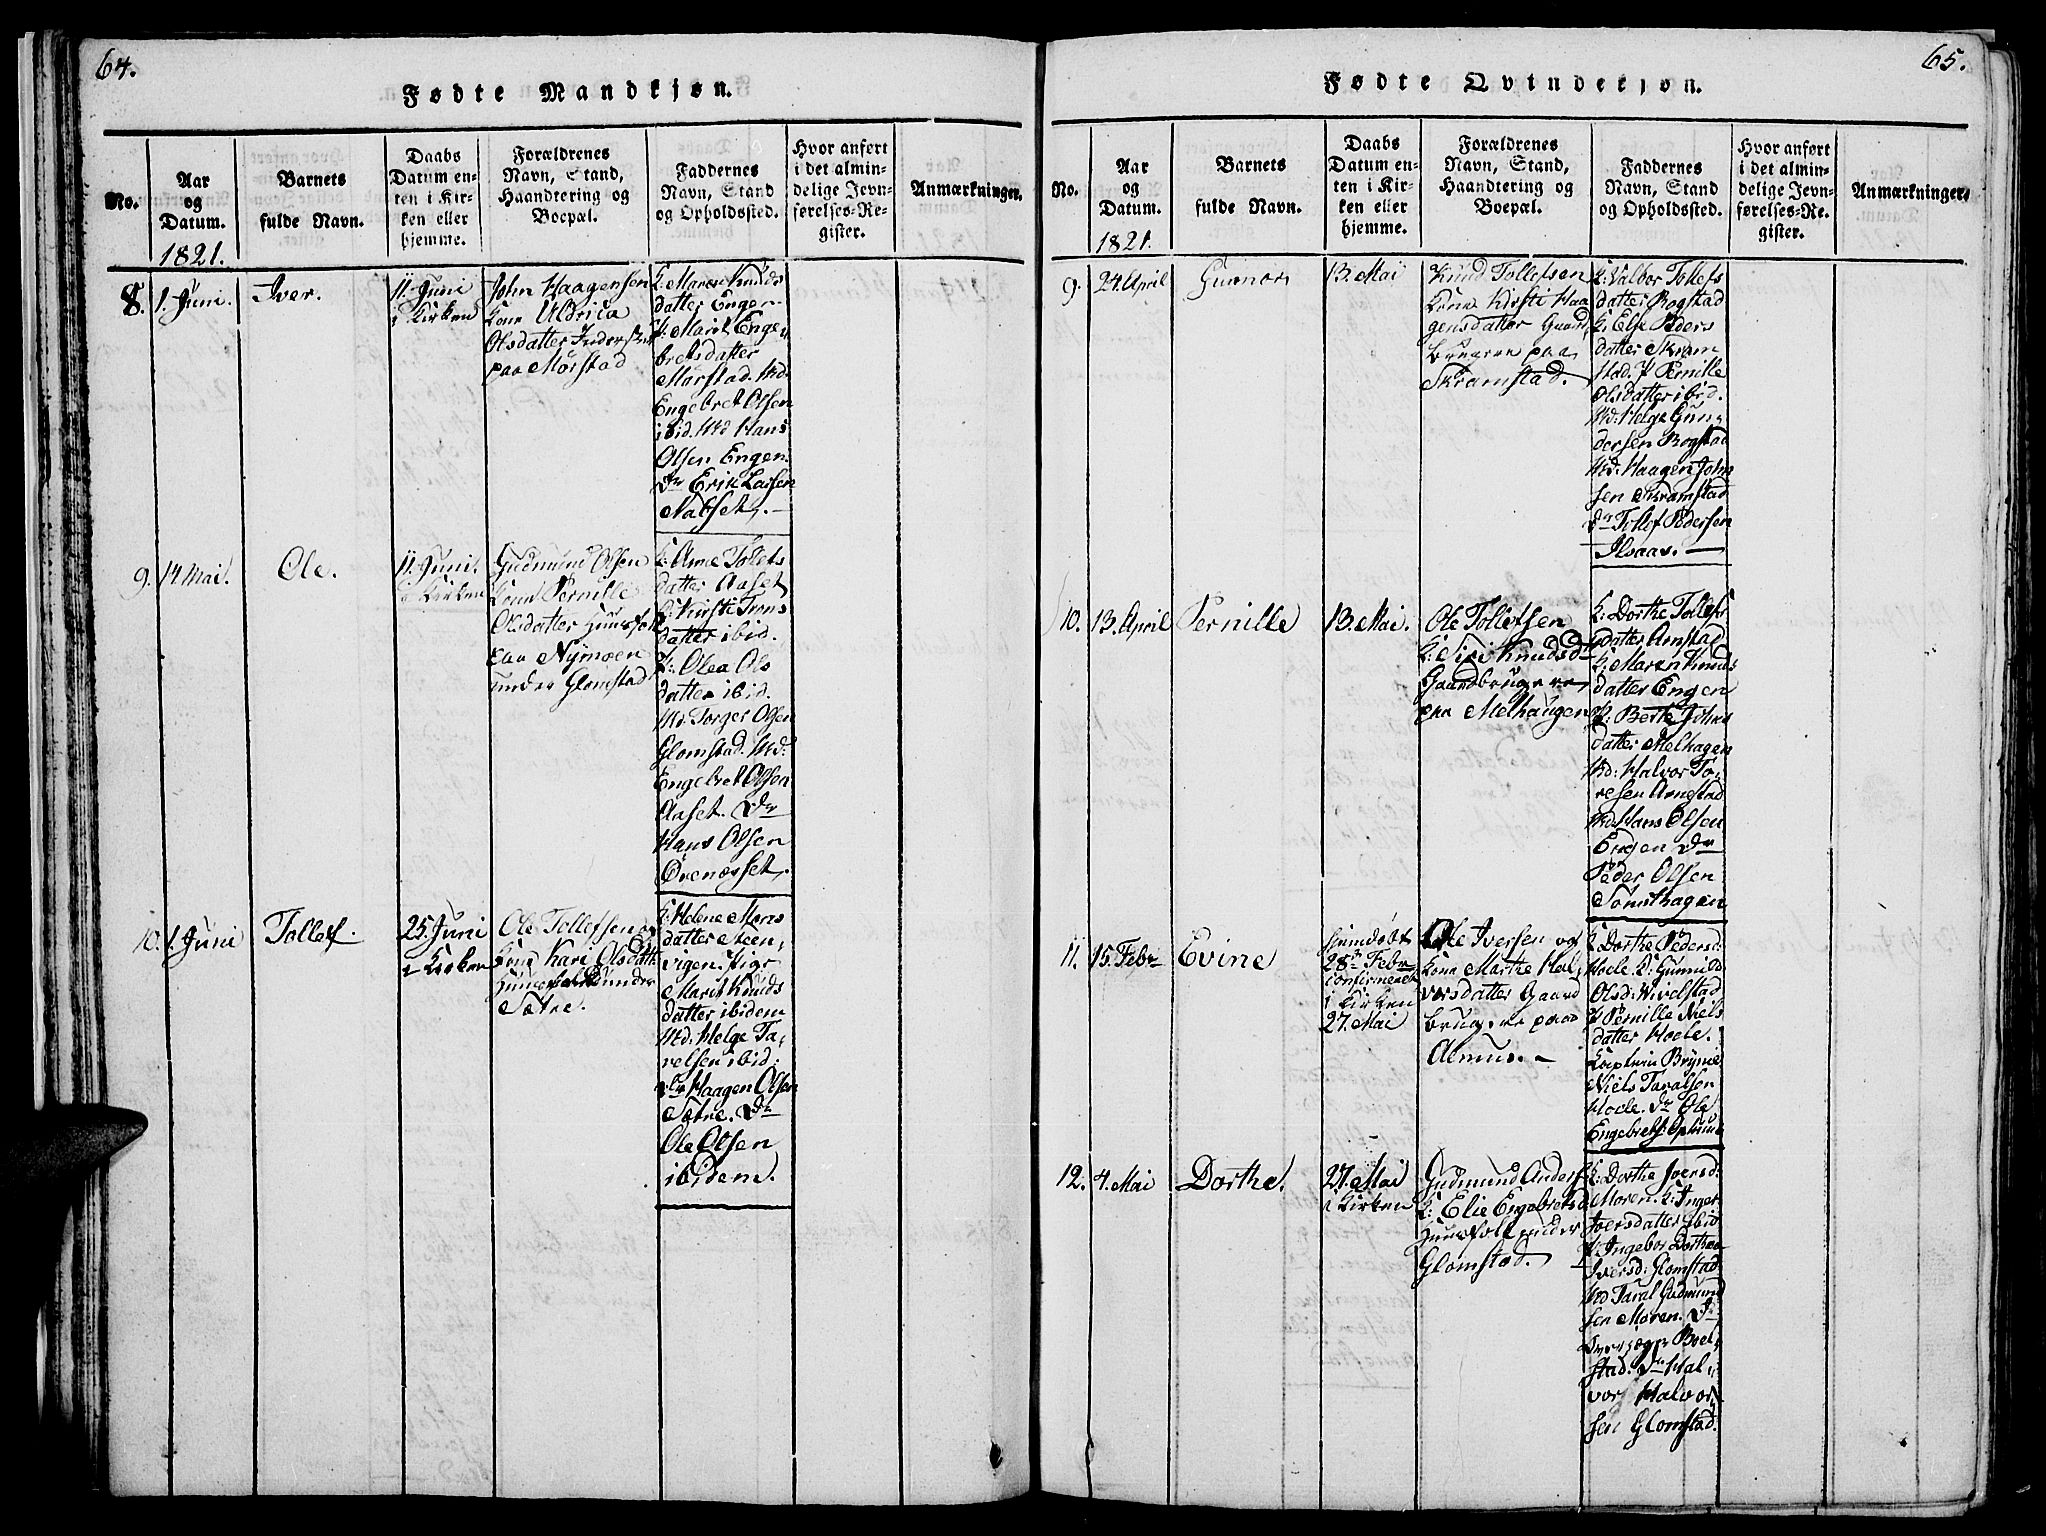 64.
Fødte Mandkjøn.
No.
Aar
og
Datum.
1821.
Barnets
fulde Navn.
Daabs
Datum en-
ten i Kir-
ken eller
hjemme.
Forældrenes
Navn, Stand,
Haandtering og
Boepæl.
Faddernes
Navn, Stand
og Opholdssted.
Hvor anført
i det almin-
delige Jevn-
førelses-Re-
gister.
Anmærkninger.
8.
1. Juni.
Iver.
11. Juni
i Kirken
John Haagensen
Kone Uldrica
Olsdatter
paa Mørstad
K: Maren Knuds
datter Engen
K: Marit Enge
bretsdatter
Mørstad. Md.
Engebret Olsen
ibid. Md Hans
Olsen Engen.
Dr Erik Larsen
Nabset. —
9.
14. Mai.
Ole.
11. Juni.
i Kirken
Gudmund Olsen
Kone Pernille
Olsdatter Huusfolk
paa Nymoen
under Glomstad
K: Anne Tollefs
datter Aaset
K: Kirsti Trons
datter ibid.
P: Olea Ols
datter ibid.
Md. Torger Olsen
Glomstad. Md:
Engebret Olsen
Aaset. Dr
Hans Olsen
Øvenæsset.
10.
1. Juni
Tollef.
25. Juni
i Kirken
Ole Tollefsen og
Kone Kari Olsdatt:
Huusfolk under
Sætre.
K: Helene Mons
datter Steen,
vigen. Pige
Marit Knuds
datter ibidem
Md: Helge Ta,
relsen ibid:
Dr Haagen Olsen
Sætre. Dr
Ole Olsen
ibidem.
65.
Fødte Qvindekjøn.
No.
Aar
og
Datum.
1821.
Barnets
fulde Navn.
Daabs
Datum en-
ten i Kir-
ken eller
hjemme.
Forældrenes
Navn, Stand,
Haandtering og
Boepæl.
Faddernes
Navn, Stand
og Opholdssted.
Hvor anført
i det almin-
delige Jevn-
førelses-Re-
gister.
Anmærkninger.
9.
24. April
Gunnor
13. Mai
Knud Tollefsen
Kone Kirsti Haa
gensdatter Gaard,
brugere paa
Skramstad.
K: Valbor Tollefs
datter Rogstad
K: Else Peders
datter Skram
stad. P Pernille
Olsdatter ibid.
Md: Helge Gun,
dersen Rogstad
Md: Haagen John
sen Skramstad
Dr Tollef Pedersen
Ilsaas. —
10.
13. April
Pernille
13. Mai.
Ole Tollefsen
K: Siri Knudsdr
Gaardbrugere
paa Melhaugen
K: Dorthe Tollefs
datter Arnstad
K: Maren Knuds
datter Engen
P: Berte Johns
datter Melhagen
Md: Halvor To,
resen Arnestad
Md. Hans Olsen
Engen Dr
Peder Olsen
Tomthagen
11.
15. Febr
Evine
hjemdøbt
28de Febr
confirmeret
i Kirken
27. Mai
Ole Iversen og
Kone Marthe Hal,
vorsdatter Gaard
brugere paa
Almue. —
K. Dorthe Pedersd:
Hoele. K: Gunnild
Olsd: Wivelstad
P Pernille Niels
datter Hoele.
Niels Taralsen
Hoele. Dr Ole
Engebrets: Ophuus
12.
4. Mai
Dorthe.
27. Mai
i Kirken
Gudmund Anders:
K: Elie Engebretsd
Huusfolk under
Glomstad.
K: Dorthe Iversd:
Moren. K: Inger
Iversdatter ibid
P Ingebor Dorthea
Iversd: Glomstad
Md Taral Gudmund
sen Moren. Dr
stad. Dr Hal,
vor Halvor
sen Glomstad.